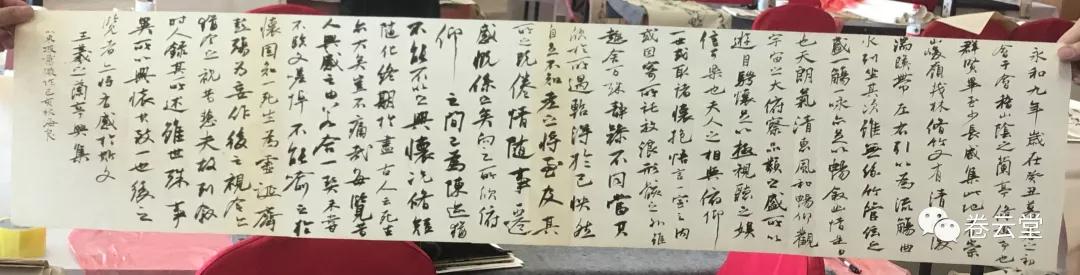 永和九年歲在癸丑暮春之初
會于會稽山陰之蘭亭修禊事也
群賢畢至少長咸集此地有崇
山峻嶺茂林修竹又有清流激
湍映帶左右引以為流觴曲
水列坐其次雖無絲竹管弦之
盛一觴一詠亦足以暢敘幽情是日
也天朗氣清惠風和暢仰觀
宇宙之大俯察品類之盛所以
遊目騁懷足以極視聽之娛
信可樂也夫人之相與俯仰
一世或取諸懷抱悟言一室之內
或因寄所託放浪形骸之外雖
趣舍萬殊靜躁不同當其
欣於所遇暫得於己快然
自足不知老之將至及其
所之既倦情隨事遷
感慨係之矣向之所欣俯
仰之間已為陳迹猶
不能不以之興懷況修短
隨化終期於盡古人云死生
亦大矣豈不痛哉每覽昔
人興感之由若合一契未嘗
不臨文嗟悼不能喻之於
懷固知一死生為虛誕齊
彭殤為妄作後之視今亦
猶今之視昔悲夫故列敘
時人錄其所述雖世殊事
異所以興懷其致一也後之
覽者亦將有感於斯文
王羲之蘭亭興集
己亥秋
卷云堂